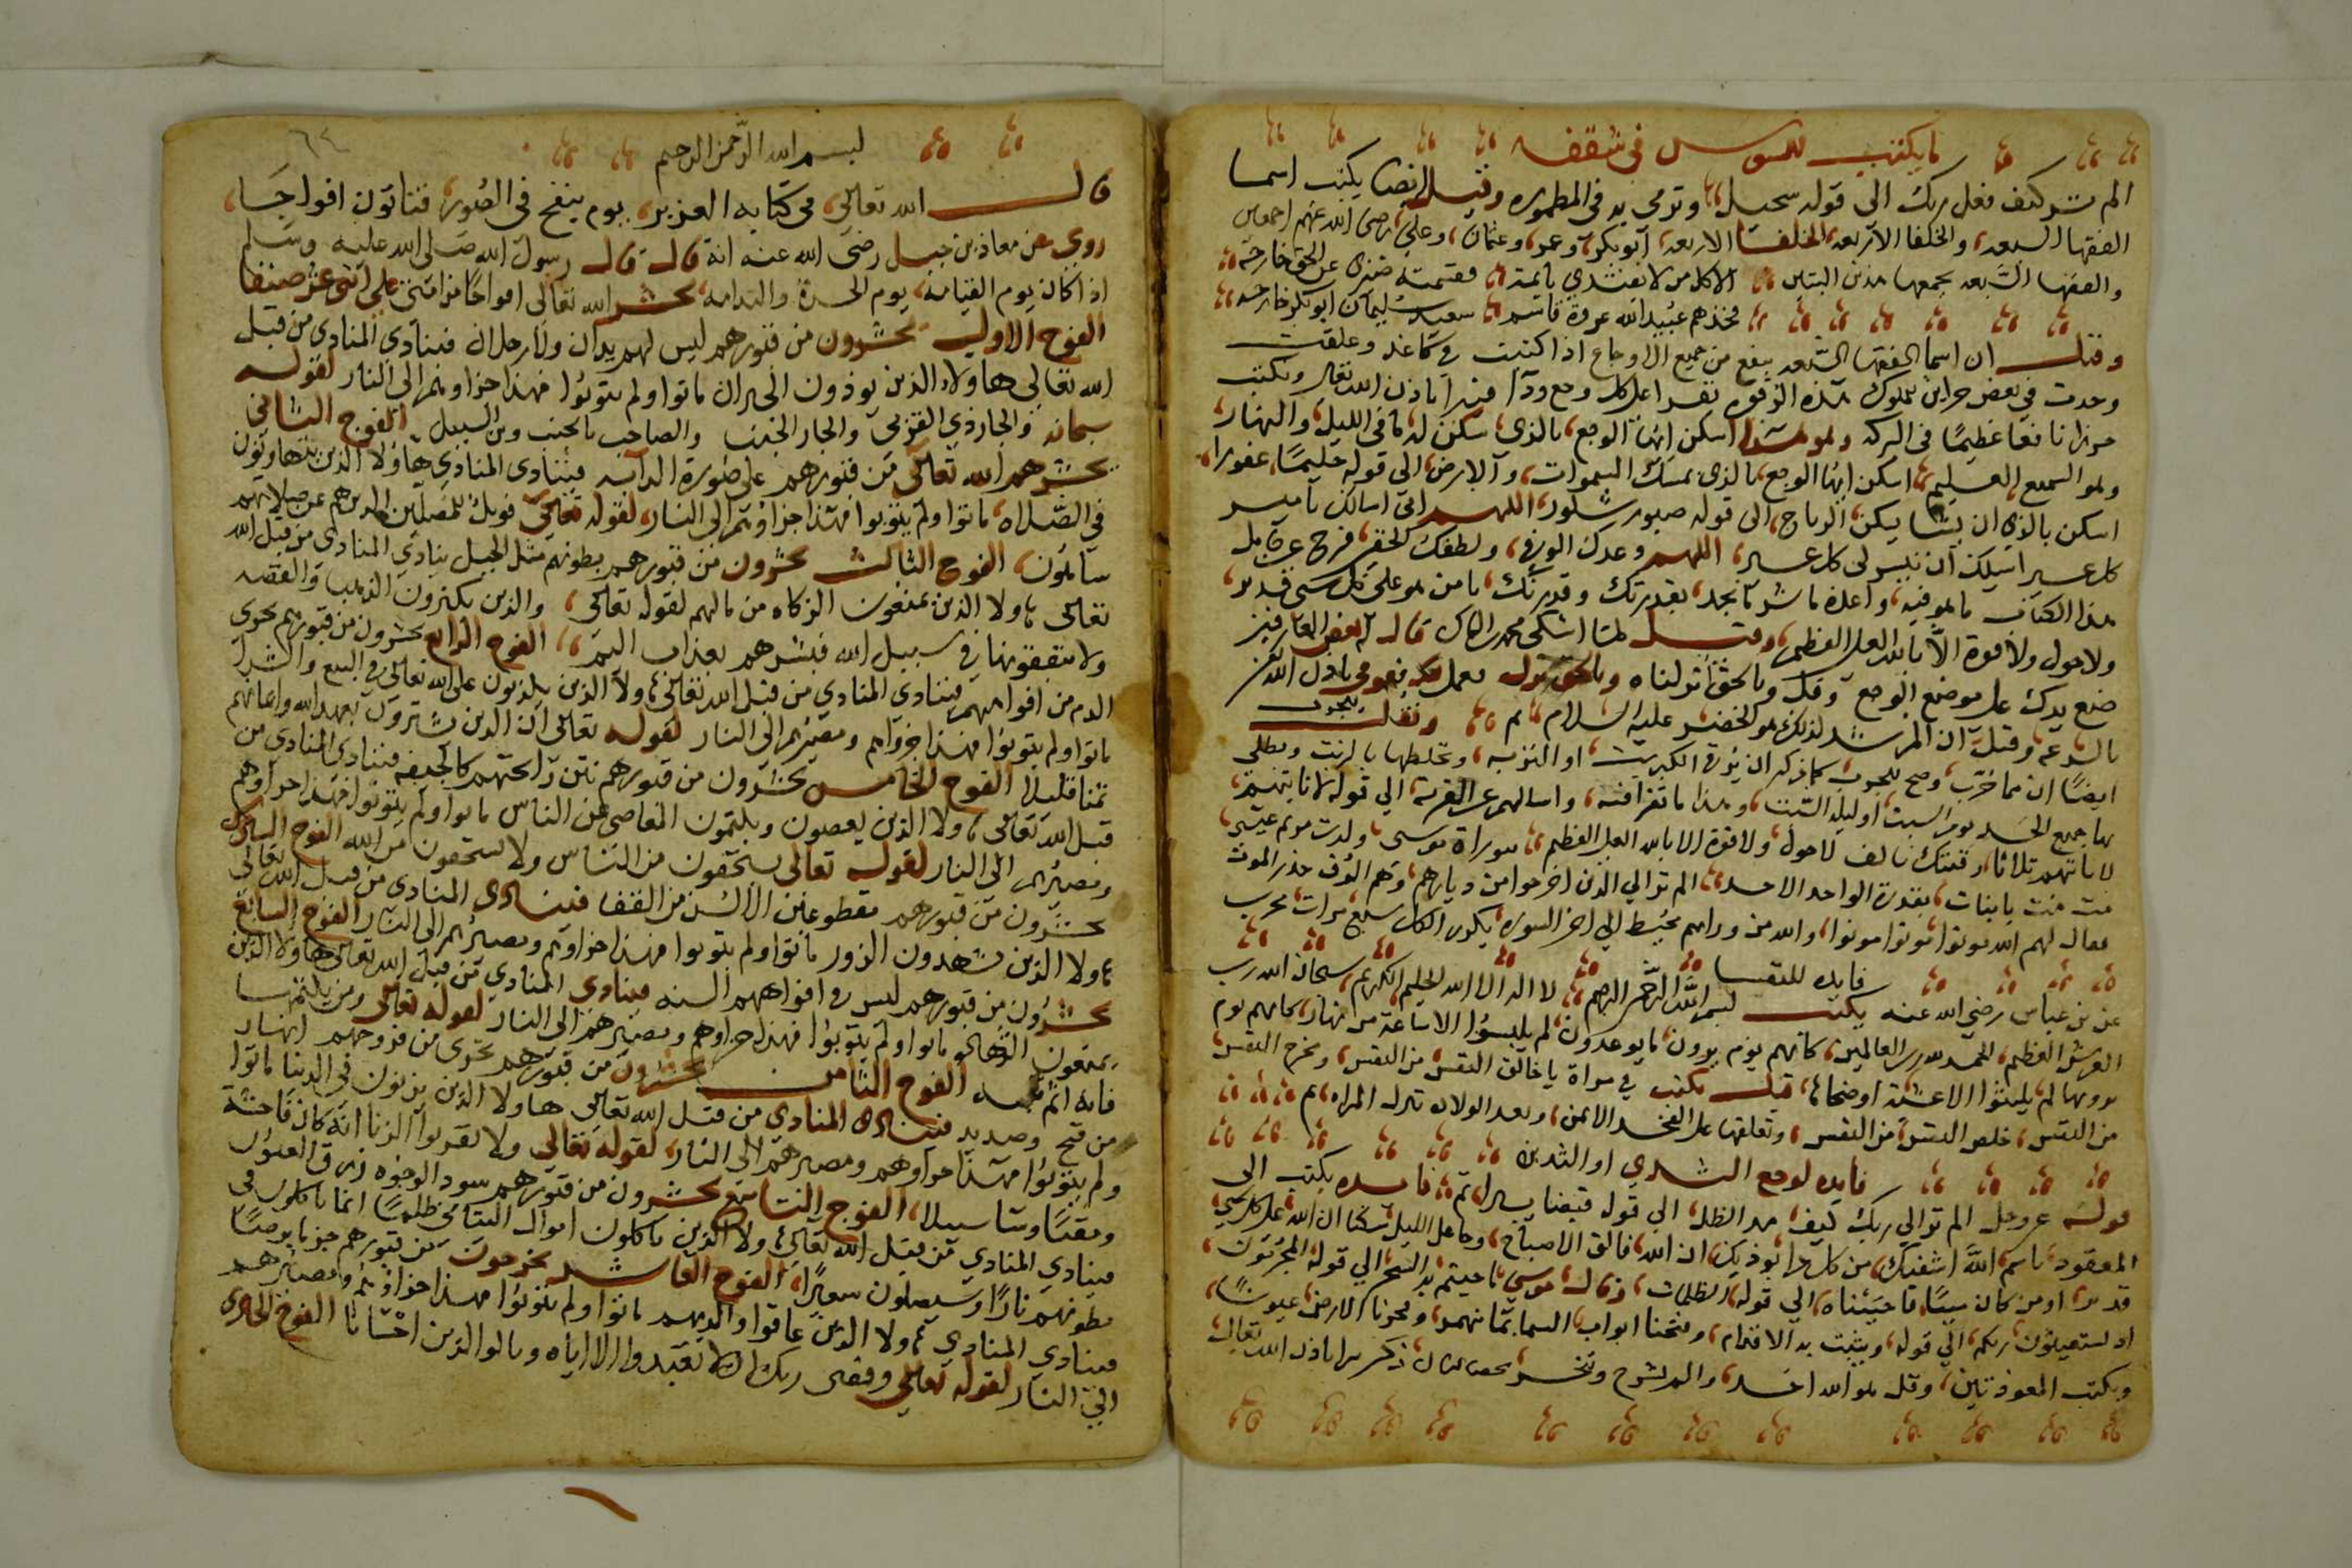 ما يكتب للسوس في شقفه
الم تر كيف فعل ربك الى قوله سجيل وترمي به في المطموره وقيل ايضا يكتب اسما
الفقها السبعه والخلفا الاربعه الخلفا الاربعه ابو بكر وعمر وعثمان وعلي رضي الله عنهم اجمعين
والفقها السبعه يجمعها هذين البيتين الا كل من لا يقتدي بائمة فقسمته ضيزى عن الحق خارجه
فخذهم عبيد الله عروة قاسم سعيد سليمان ابو بكر خارجه
وقيل ان اسما الفقها السبعه ينفع من جميع الاوجاع اذا كتبت في كاغد وعلقت
وجدت في بعض خزاين الملوك هذه الرقوه تقرا على كل وجع ودا فيبرا باذن الله تعالى وتكتب
حرزا نافعا عظيما في البركه وهو هذا اسكن ايها الوجع بالذي سكن له ما في الليل والنهار
وهو السميع العليم اسكن ايها الوجع بالذي يمسك السموات والارض الى قوله حليما غفورا
اسكن بالذي ان يشا يسكن الرياح الى قوله صبور شكور اللهم اني اسالك يا ميسر
كل عسير اسيلك ان تيسر لي كل عسير اللهم وعدك الوفي ولطفك الخفي فرج عن حامل
هذا الكتاب ما هو فيه واعذه ما شر ما يجد بقدرتك وقدرتك يا من هو على كل شي قدير
ولا حول ولا قوة الا بالله العلي العظيم وقيل لما اشتكى محمد بن السماك قال له بعض العارفين
ضع يدك على موضع الوجع وقل وبالحق انزلناه وبالحق نزل فعمل به فعوفي باذن الله
بالسرعه وقيل ان المرشد لذلك هو الخضر عليه السلام تم ونقلت
ايضا ان مما جرب وصح للجرب كما ذكر ان يؤخذ الكبريت او التربه وتخلطها بالزيت ويطلى
بها جميع الجسد يوم السبت او ليلة السبت وهذا ما تقرا فيه واسالهم عن القرية الى قوله لا تاتيهم
لا تاتيهم ثلاثا لا حول ولا قوة الا بالله العلي العظيم
بقدرة الواحد الاحد الم تر الى الذين اخرجوا من ديارهم وهم الوف حذر الموت
فقال لهم الله موتوا موتوا موتوا والله من ورايهم محيط الى اخر السوره يكرر الكل سبع مرات مجرب
فايده للنفسا
عن بن عباس رضي الله عنه يكتب بسم الله الرحمن الرحيم لا اله الا الله الحليم الكريم سبحان الله رب
العرش العظيم الحمد لله رب العالمين كانهم يوم يرون ما يوعدون لم يلبثوا الا ساعة من نهار كانهم يوم
يرونها لم يلبثوا الا عشية او ضحاها قيل يكتب في مراة يا خالق النفس من النفس ومخرج النفس
من النفس خلص النفس من النفس وتعلقها على الفخد الايمن وبعد الولاده تزال المراه تم
فايده لوجع الثدي او الثديين
قوله عز وجل الم تر الى ربك كيف مد الظل الى قوله قبضا يسيرا تم فايده يكتب الى
المعقود باسم الله اشفيك من كل دا يوذيك ان الله فالق الاصباح وجاعل الليل سكنا ان الله على كل شي
قدير او من كان ميتا فاحييناه الى قوله الظلمات وقال موسى ما جيتم به السحر الى قوله المجرمون
اذ تستغيثون ربكم الى قوله ويثبت به الاقدام وفتحنا ابواب السما بما منهمر وفجرنا الارض عيونا
ويكتب المعوذتين وقل هو الله احد والم نشرح وتبخر يبرا باذن الله تعالى
٦٤
بسم الله الرحمن الرحيم
قال الله تعالى في كتابه العزيز يوم ينفخ في الصور فتاتون افواجا
روي عن معاذ بن جبل رضي الله عنه انه قال قال رسول الله صلى الله عليه وسلم
اذا كان يوم القيامه يوم الحسرة والندامه يحشر الله تعالى افواجا من امتي على اثنى عشر صنفا
الفوج الاول يحشرون من قبورهم ليس لهم يدان ولا رجلان فينادي المنادي من قبل
الله تعالى هاولاء الذين يوذون الجيران ماتوا ولم يتوبوا فهذا جزاوهم الى النار لقوله
سبحانه والجار ذي القربى والجار الجنب والصاحب بالجنب وبن السبيل الفوج الثاني
يحشرهم الله تعالى من قبورهم على صورة الدابه فينادي المنادي هاولا الذين يتهاونون
في الصلاه ماتوا ولم يتوبوا فهذا جزاؤهم الى النار لقوله تعالى فويل للمصلين الذين هم عن صلاتهم
ساهون الفوج الثالث يحشرون من قبورهم بطونهم مثل الجبل ينادي المنادي من قبل الله
تعالى هاولا الذين يمنعون الزكاه من مالهم لقوله تعالى والذين يكنزون الذهب والفضه
ولا ينفقونها في سبيل الله فبشرهم بعذاب اليم الفوج الرابع يحشرون من قبورهم يجري
الدم من افواههم فينادي المنادي من قبل الله تعالى هاولا الذين يكذبون على الله تعالى في البيع والشرا
ماتوا ولم يتوبوا فهذا جزاوهم ومصيرهم الى النار لقوله تعالى ان الذين يشترون بعهد الله وايمانهم
ثمنا قليلا الفوج الخامس يحشرون من قبورهم نتن رائحتهم كالجيفه فينادي المنادي من
قبل الله تعالى هاولا الذين يعصون ويكتمون المعاصي من الناس ماتوا ولم يتوبوا فهذا جزاوهم
ومصيرهم الى النار لقوله تعالى يستخفون من الناس ولا يستخفون من الله الفوج السادس
يحشرون من قبورهم مقطوعين الالسن من القفا فينادي المنادي من قبل الله تعالى
هاولا الذين يشهدون الزور ماتوا ولم يتوبوا فهذا جزاوهم ومصيرهم الى النار الفوج السابع
يحشرون من قبورهم ليس في افواههم السنه فينادي المنادي من قبل الله تعالى هاولا الذين
يمنعون الشهاده ماتوا ولم يتوبوا فهذا جزاوهم ومصيرهم الى النار لقوله تعالى ومن يكتمها
فانه اثم قلبه الفوج الثامن يحشرون من قبورهم تجري من فروجهم انهار
من قيح وصديد فينادي المنادي من قبل الله تعالى هاولا الذين يزنون في الدنيا ماتوا
ولم يتوبوا فهذا جزاوهم ومصيرهم الى النار لقوله تعالى ولا تقربوا الزنا انه كان فاحشة
ومقتا وسا سبيلا الفوج التاسع يحشرون من قبورهم سود الوجوه زرق العيون
فينادي المنادي من قبل الله تعالى هاولا الذين ياكلون اموال اليتامى ظلما انما ياكلون في
بطونهم نارا وسيصلون سعيرا الفوج العاشر يخرجون من قبورهم
فينادي المنادي هاولا الذين عاقوا والديهم ماتوا ولم يتوبوا فهذا جزاوهم ومصيرهم
الى النار لقوله تعالى وقضى ربك الا تعبدوا الا اياه وبالوالدين احسانا الفوج الحادي